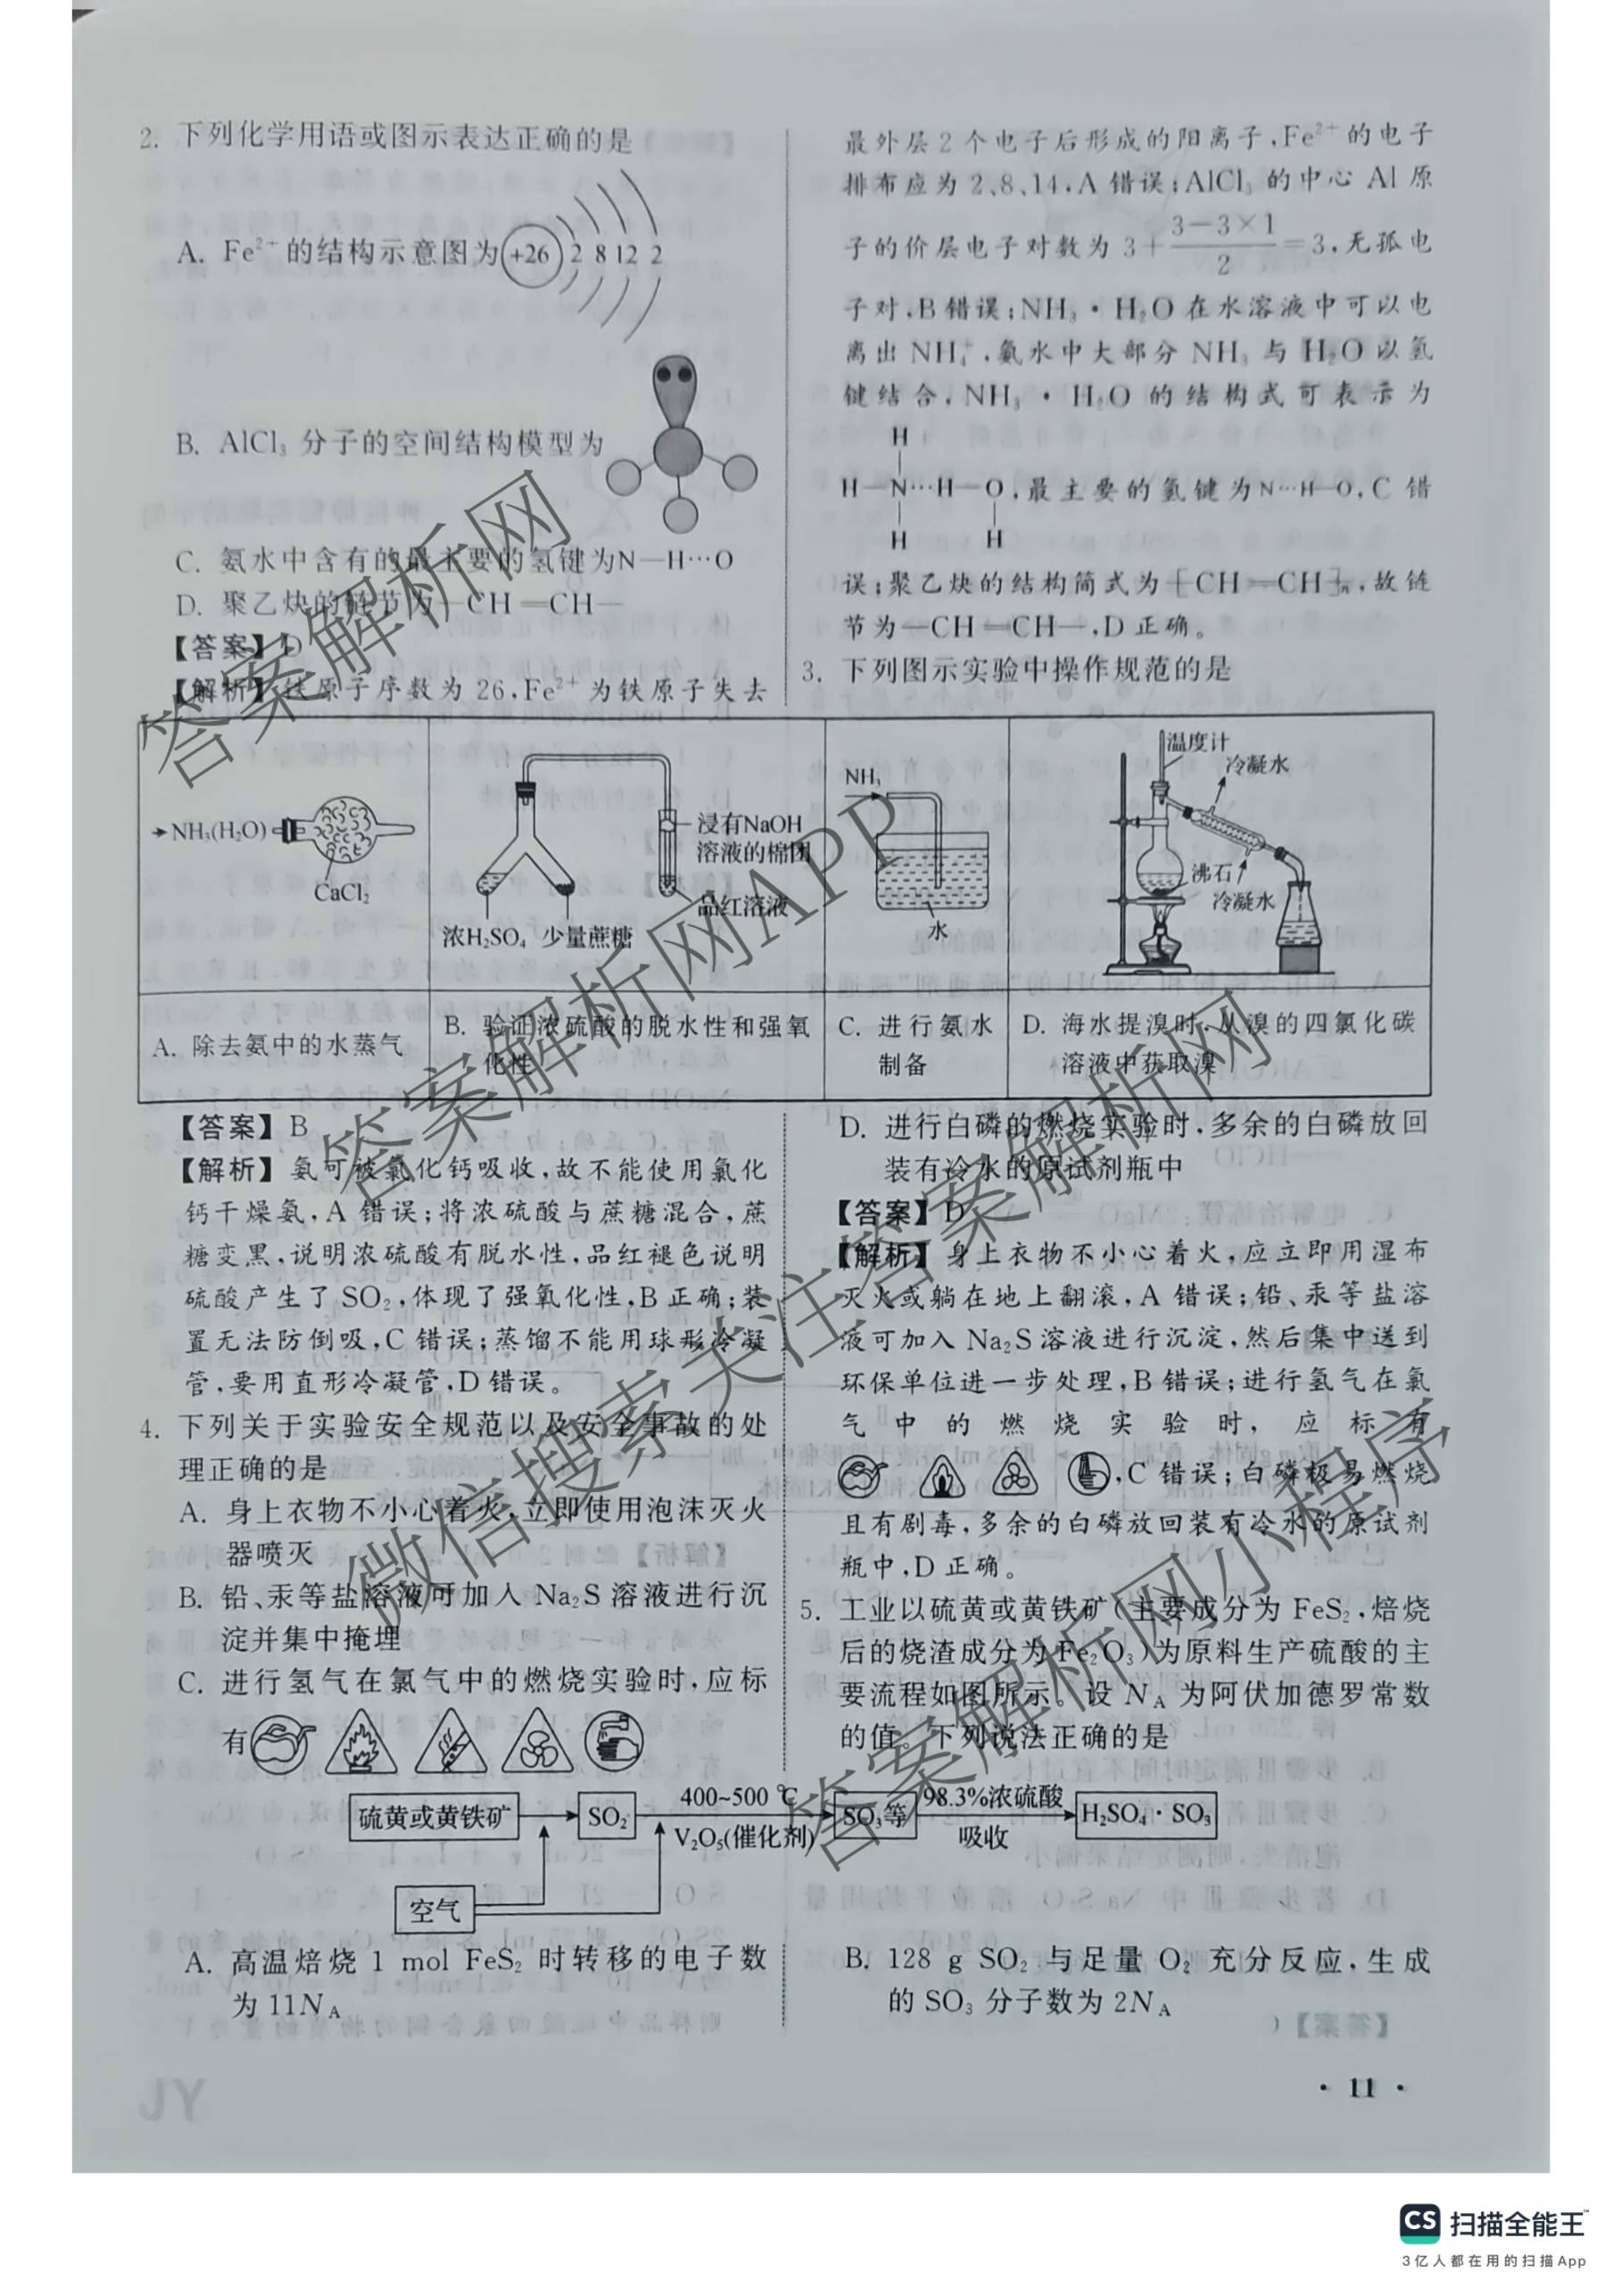 2. 下列化学用语或图示表达正确的是
A. Fe²⁺ 的结构示意图为 +26 2 8 12 2
B. AlCl₃ 分子的空间结构模型为
C. 氨水中含有的最主要的氢键为N—H…O
D. 聚乙炔的链节为—CH=CH—
【答案】D
【解析】铁原子序数为 26,Fe²⁺ 为铁原子失去
最外层 2 个电子后形成的阳离子,Fe²⁺ 的电子
排布应为 2、8、14,A 错误;AlCl₃ 的中心 Al 原
子的价层电子对数为 3+(3−3×1)/2=3,无孤电
子对,B 错误;NH₃·H₂O 在水溶液中可以电
离出 NH₄⁺,氨水中大部分 NH₃ 与 H₂O 以氢
键结合,NH₃·H₂O 的结构式可表示为
H
H—N…H—O,最主要的氢键为N…H—O,C 错
H H
误;聚乙炔的结构简式为[CH=CH]ₙ,故链
节为—CH=CH—,D 正确。
3. 下列图示实验中操作规范的是
NH₃(H₂O)
CaCl₂
浸有NaOH
溶液的棉团
品红溶液
浓H₂SO₄ 少量蔗糖
NH₃
水
温度计
冷凝水
沸石
冷凝水
A. 除去氨中的水蒸气
B. 验证浓硫酸的脱水性和强氧
化性
C. 进行氨水
制备
D. 海水提溴时,从溴的四氯化碳
溶液中获取溴
【答案】B
【解析】氨可被氯化钙吸收,故不能使用氯化
钙干燥氨,A 错误;将浓硫酸与蔗糖混合,蔗
糖变黑,说明浓硫酸有脱水性,品红褪色说明
硫酸产生了 SO₂,体现了强氧化性,B 正确;装
置无法防倒吸,C 错误;蒸馏不能用球形冷凝
管,要用直形冷凝管,D 错误。
4. 下列关于实验安全规范以及安全事故的处
理正确的是
A. 身上衣物不小心着火,立即使用泡沫灭火
器喷灭
B. 铅、汞等盐溶液可加入 Na₂S 溶液进行沉
淀并集中掩埋
C. 进行氢气在氯气中的燃烧实验时,应标
有
D. 进行白磷的燃烧实验时,多余的白磷放回
装有冷水的原试剂瓶中
【答案】D
【解析】身上衣物不小心着火,应立即用湿布
灭火或躺在地上翻滚,A 错误;铅、汞等盐溶
液可加入 Na₂S 溶液进行沉淀,然后集中送到
环保单位进一步处理,B 错误;进行氢气在氯
气中的燃烧实验时,应标有
,C 错误;白磷极易燃烧
且有剧毒,多余的白磷放回装有冷水的原试剂
瓶中,D 正确。
5. 工业以硫黄或黄铁矿(主要成分为 FeS₂,焙烧
后的烧渣成分为 Fe₂O₃)为原料生产硫酸的主
要流程如图所示。设 N_A 为阿伏加德罗常数
的值。下列说法正确的是
硫黄或黄铁矿 SO₂ 400~500 ℃ V₂O₅(催化剂) SO₃等 98.3%浓硫酸 吸收 H₂SO₄·SO₃
空气
A. 高温焙烧 1 mol FeS₂ 时转移的电子数
为 11N_A
B. 128 g SO₂ 与足量 O₂ 充分反应,生成
的 SO₃ 分子数为 2N_A
· 11 ·
答案解析网
答案解析网APP
微信搜索关注答案解析网
答案解析网小程序
CS 扫描全能王™
3亿人都在用的扫描App